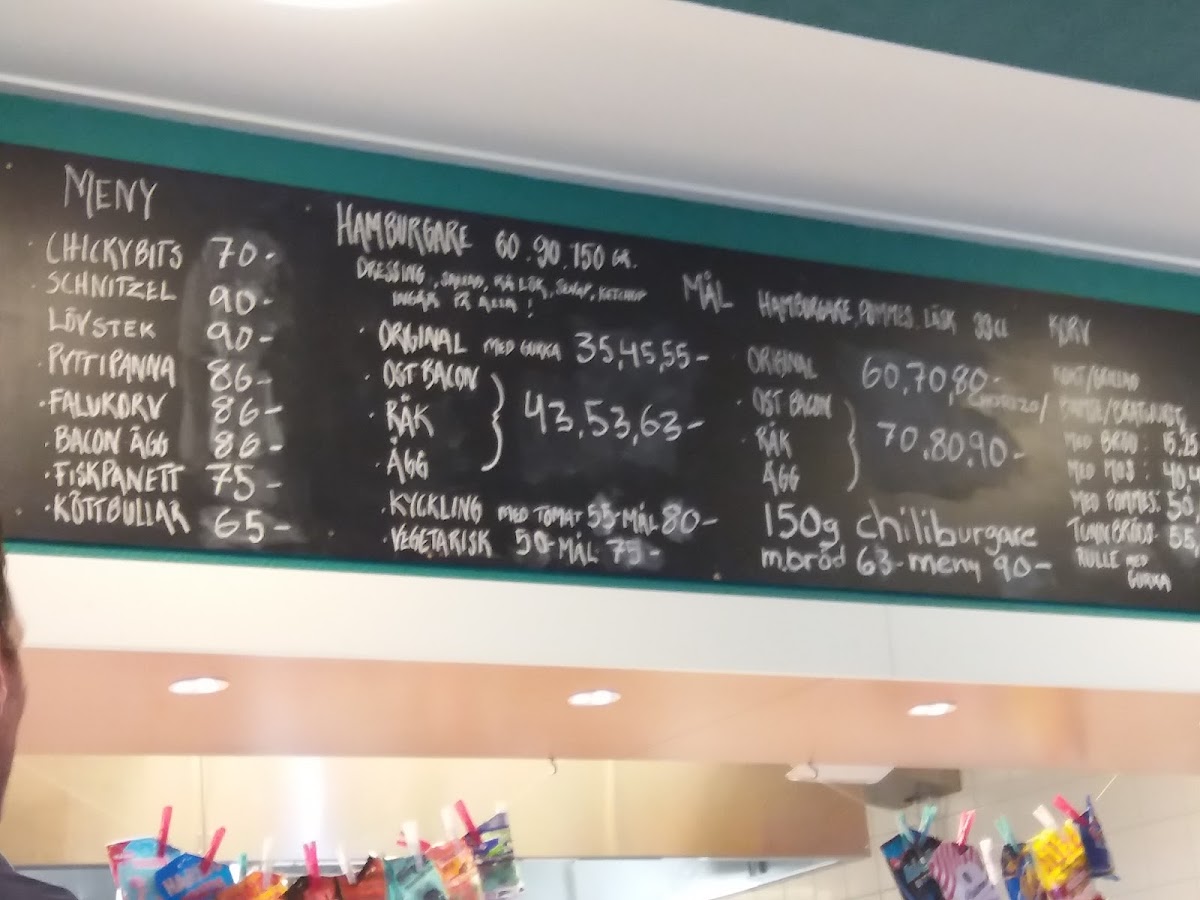 MENY
CHICKYBITS 70-
SCHNITZEL 90-
LÖVSTEK 90-
PYTTIPANNA 86-
FALUKORV 86-
BACON ÄGG 86-
FISKPANETT 75-
KÖTTBULLAR 65-
HAMBURGARE 60.90.150 GR.
DRESSING, SALLAD, RÅ LÖK, SENAP, KETCHUP
INGÅR PÅ ALLA!
ORIGINAL MED GURKA 35,45,55-
OST BACON
RÄK 43,53,63-
ÄGG
KYCKLING MED TOMAT 55-MÅL 80-
VEGETARISK 50-MÅL 75-
MÅL HAMBURGARE, POMMES, LÄSK 33CL
ORIGINAL 60,70,80-
OST BACON
RÄK 70.80.90-
ÄGG
150g chiliburgare
m.bröd 63- meny 90-
KORV
KOKT/GRILLAD
CHORIZO/ BAMSE/BRATWURST
MED BRÖD: 15,25
MED MOS: 40,
MED POMMES: 50
TUNNBRÖDS- 55,
RULLE MED
GURKA